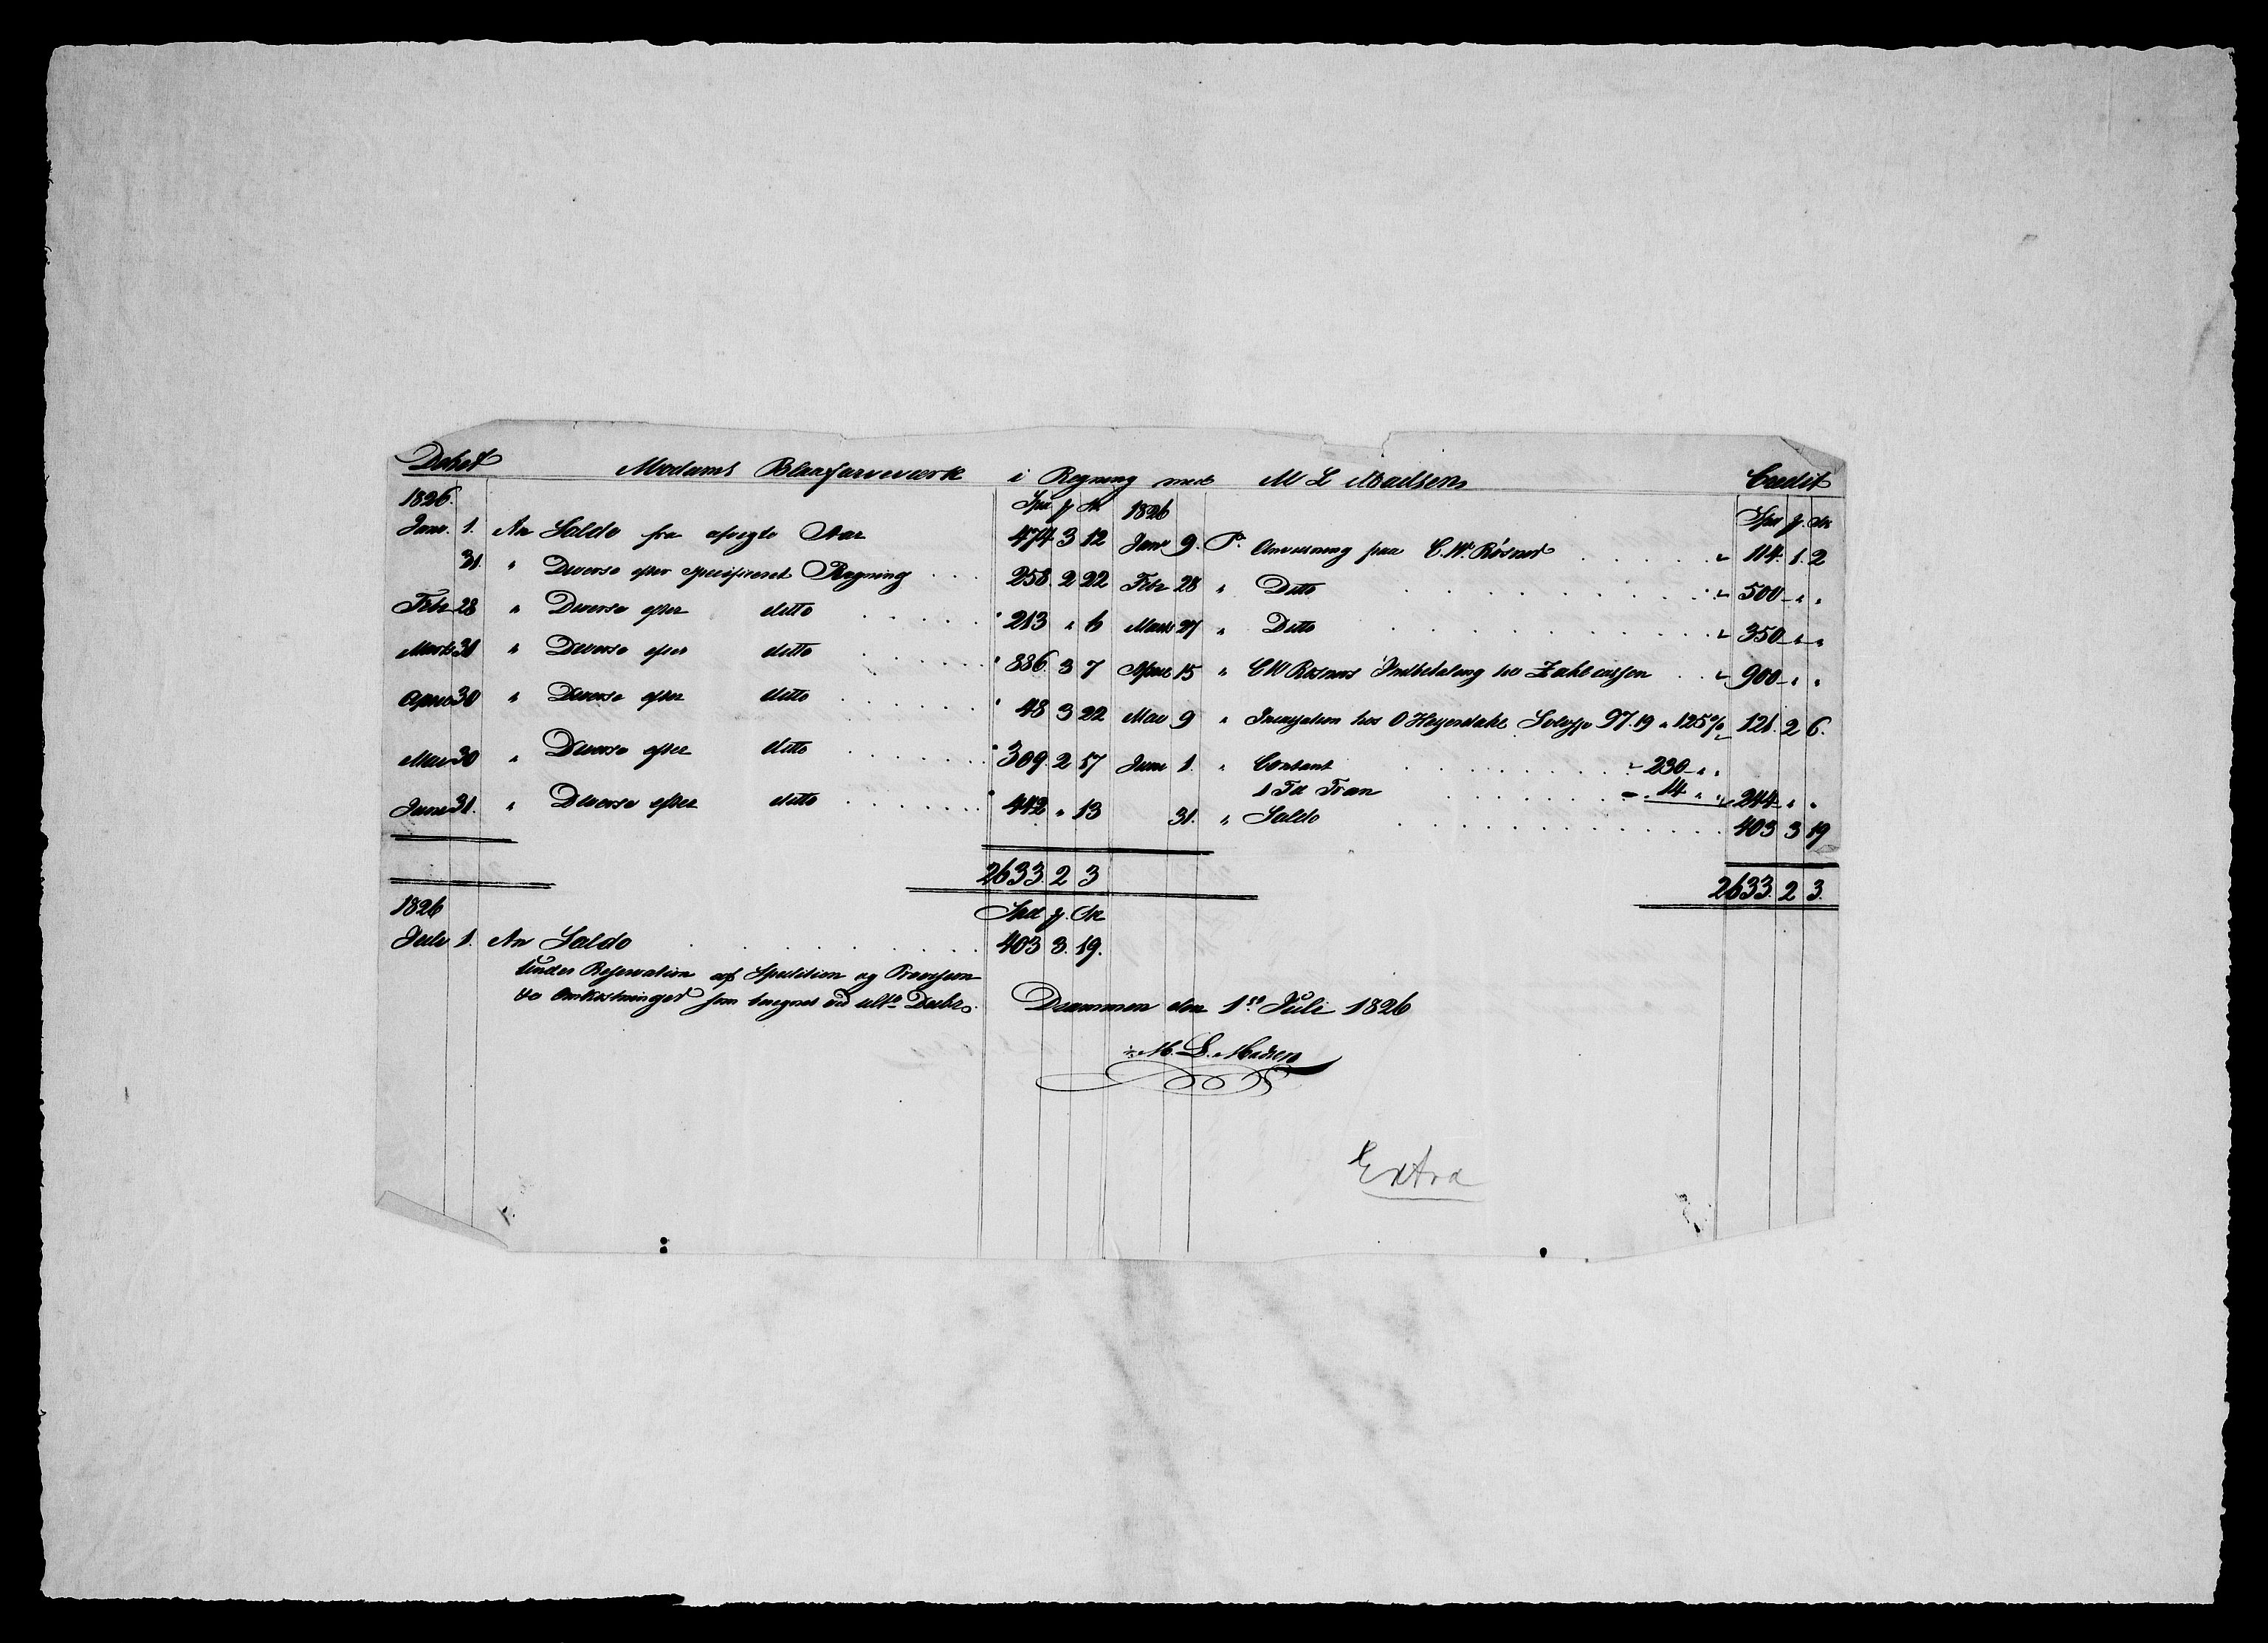 Debet Modums Blaafarveværk i Regning med M L Madsen Credit
1826. Spd ƶ Sk 1826 Spd ƶ. Sk
Janu. 1. An Saldo fra afvigte Aar 474 3 12 Janu 9. Pr. Anviisning paa C. W. Røsner 114. 1. 2
31. " Diverse efter specificeret Regning 258. 2 22 Febr 28 " Ditto 500 " "
Febr 28 " Diverse efter ditto 213 " 6 Marts 27 " Ditto 350 " "
Marts 31 " Diverse efter ditto 886. 3 7 April 15 " C W Røsners Indbetaling 900 " "
April 30 " Diverse efter ditto 48 3 22 Mai 9 " hos O Heyerdahl 97. 19 a 125% 121. 2 6.
Mai 30 " Diverse efter ditto 309. 2 17 Juni 1. " Contant 230 " "
1 Fd Tran 14 " " 244 " "
Juni 31. " Diverse efter ditto 442 " 13 31. " Saldo 403 3 19
2633. 2 3 2633. 2 3.
1826 Spd ƶ. Sk
Juli 1. An Saldo 403 3. 19.
Under Reservation af Spedition og Provision
Omkostninger som beregnes ved ult. Decbr.
Drammen den 1ste Juli 1826
M. L. Madsen
Extra